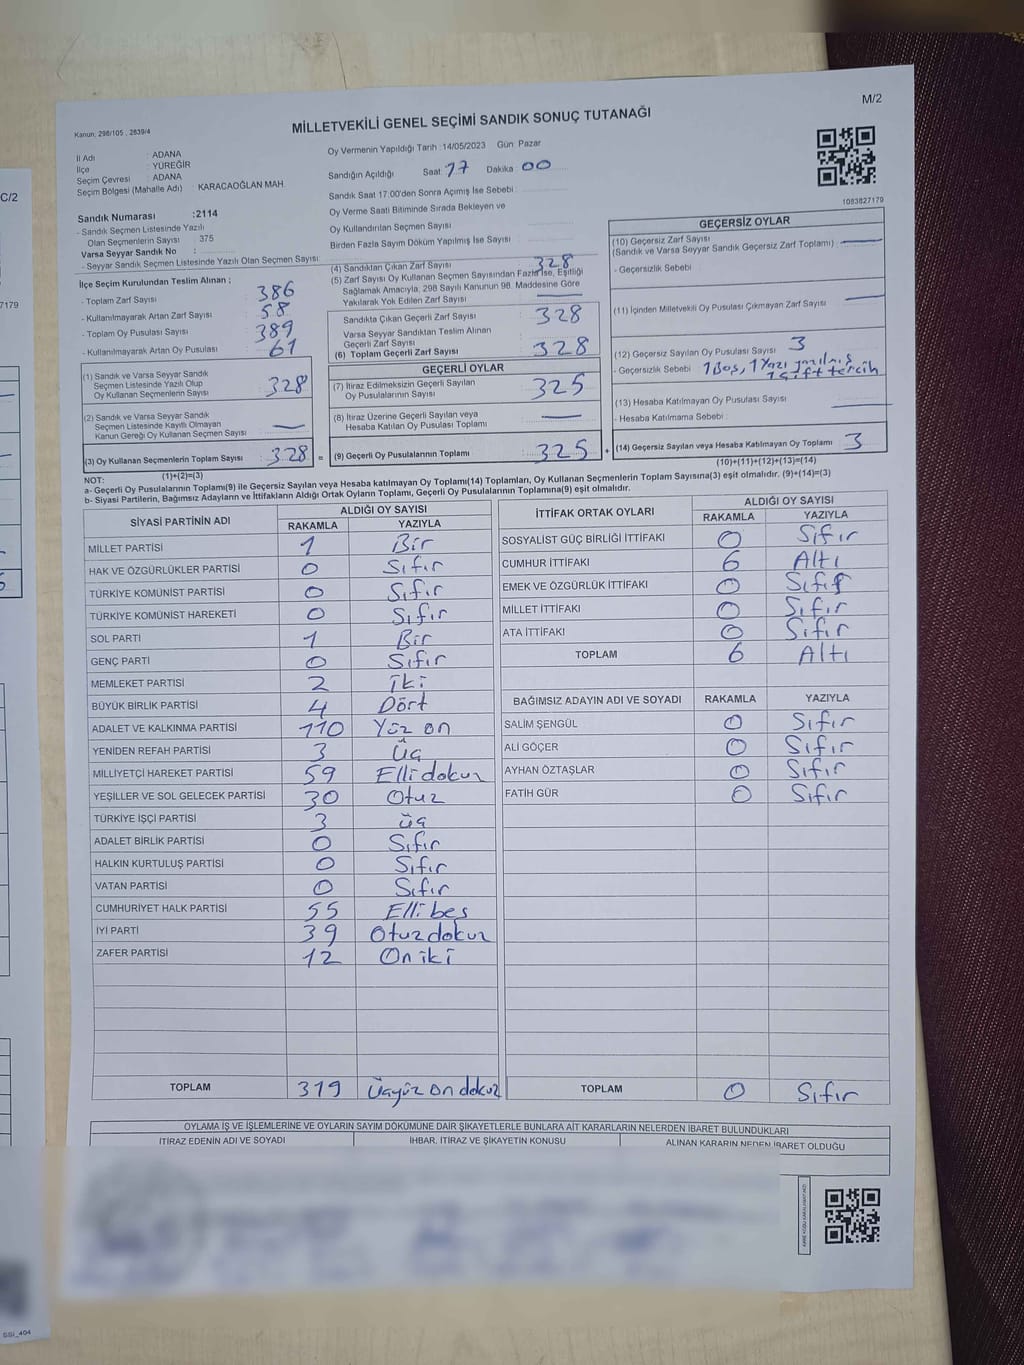 M/2
Kanun: 298/105 , 2839/4
MİLLETVEKİLİ GENEL SEÇİMİ SANDIK SONUÇ TUTANAĞI
İl Adı : ADANA
İlçe : YÜREĞİR
Seçim Çevresi : ADANA
Seçim Bölgesi (Mahalle Adı) KARACAOĞLAN MAH.
Sandık Numarası :2114
- Sandık Seçmen Listesinde Yazılı
Olan Seçmenlerin Sayısı : 375
Varsa Seyyar Sandık No :
- Seyyar Sandık Seçmen Listesinde Yazılı Olan Seçmen Sayısı :
Oy Vermenin Yapıldığı Tarih :14/05/2023 Gün: Pazar
Sandığın Açıldığı Saat: 17 Dakika: 00
Sandık Saat 17:00'den Sonra Açımış İse Sebebi :
Oy Verme Saati Bitiminde Sırada Bekleyen ve
Oy Kullandırılan Seçmen Sayısı :
Birden Fazla Sayım Döküm Yapılmış İse Sayısı :
1083827179
İlçe Seçim Kurulundan Teslim Alınan ;
- Toplam Zarf Sayısı : 386
- Kullanılmayarak Artan Zarf Sayısı : 58
- Toplam Oy Pusulası Sayısı : 389
- Kullanılmayarak Artan Oy Pusulası : 61
(1) Sandık ve Varsa Seyyar Sandık
Seçmen Listesinde Yazılı Olup
Oy Kullanan Seçmenlerin Sayısı : 328
(2) Sandık ve Varsa Seyyar Sandık
Seçmen Listesinde Kayıtlı Olmayan
Kanun Gereği Oy Kullanan Seçmen Sayısı : —
(3) Oy Kullanan Seçmenlerin Toplam Sayısı : 328
(1)+(2)=(3)
(4) Sandıktan Çıkan Zarf Sayısı : 328
(5) Zarf Sayısı Oy Kullanan Seçmen Sayısından Fazla İse, Eşitliği
Sağlamak Amacıyla, 298 Sayılı Kanunun 98. Maddesine Göre
Yakılarak Yok Edilen Zarf Sayısı : —
Sandıkta Çıkan Geçerli Zarf Sayısı : 328
Varsa Seyyar Sandıktan Teslim Alınan
Geçerli Zarf Sayısı
(6) Toplam Geçerli Zarf Sayısı : 328
GEÇERLİ OYLAR
(7) İtiraz Edilmeksizin Geçerli Sayılan
Oy Pusulalarının Sayısı : 325
(8) İtiraz Üzerine Geçerli Sayılan veya
Hesaba Katılan Oy Pusulası Toplamı : —
(9) Geçerli Oy Pusulalarının Toplamı : 325
GEÇERSİZ OYLAR
(10) Geçersiz Zarf Sayısı : —
(Sandık ve Varsa Seyyar Sandık Geçersiz Zarf Toplamı)
- Geçersizlik Sebebi :
(11) İçinden Milletvekili Oy Pusulası Çıkmayan Zarf Sayısı : —
(12) Geçersiz Sayılan Oy Pusulası Sayısı : 3
- Geçersizlik Sebebi : 1 Boş, 1 Yazı yazılmış
1 çift tercih
(13) Hesaba Katılmayan Oy Pusulası Sayısı : —
- Hesaba Katılmama Sebebi :
(14) Geçersiz Sayılan veya Hesaba Katılmayan Oy Toplamı : 3
(10)+(11)+(12)+(13)=(14)
NOT:
a- Geçerli Oy Pusulalarının Toplamı(9) ile Geçersiz Sayılan veya Hesaba katılmayan Oy Toplamı(14) Toplamları, Oy Kullanan Seçmenlerin Toplam Sayısına(3) eşit olmalıdır. (9)+(14)=(3)
b- Siyasi Partilerin, Bağımsız Adayların ve İttifakların Aldığı Ortak Oyların Toplamı, Geçerli Oy Pusulalarının Toplamına(9) eşit olmalıdır.
SİYASİ PARTİNİN ADI ALDIĞI OY SAYISI
RAKAMLA YAZIYLA
MİLLET PARTİSİ 1 Bir
HAK VE ÖZGÜRLÜKLER PARTİSİ 0 Sıfır
TÜRKİYE KOMÜNİST PARTİSİ 0 Sıfır
TÜRKİYE KOMÜNİST HAREKETİ 0 Sıfır
SOL PARTİ 1 Bir
GENÇ PARTİ 0 Sıfır
MEMLEKET PARTİSİ 2 İki
BÜYÜK BİRLİK PARTİSİ 4 Dört
ADALET VE KALKINMA PARTİSİ 110 Yüz on
YENİDEN REFAH PARTİSİ 3 Üç
MİLLİYETÇİ HAREKET PARTİSİ 59 Elli dokuz
YEŞİLLER VE SOL GELECEK PARTİSİ 30 Otuz
TÜRKİYE İŞÇİ PARTİSİ 3 üç
ADALET BİRLİK PARTİSİ 0 Sıfır
HALKIN KURTULUŞ PARTİSİ 0 Sıfır
VATAN PARTİSİ 0 Sıfır
CUMHURİYET HALK PARTİSİ 55 Elli beş
İYİ PARTİ 39 Otuz dokuz
ZAFER PARTİSİ 12 On iki
TOPLAM 319 Üçyüz on dokuz
İTTİFAK ORTAK OYLARI ALDIĞI OY SAYISI
RAKAMLA YAZIYLA
SOSYALİST GÜÇ BİRLİĞİ İTTİFAKI 0 Sıfır
CUMHUR İTTİFAKI 6 Altı
EMEK VE ÖZGÜRLÜK İTTİFAKI 0 Sıfır
MİLLET İTTİFAKI 0 Sıfır
ATA İTTİFAKI 0 Sıfır
TOPLAM 6 Altı
BAĞIMSIZ ADAYIN ADI VE SOYADI RAKAMLA YAZIYLA
SALİM ŞENGÜL 0 Sıfır
ALİ GÖÇER 0 Sıfır
AYHAN ÖZTAŞLAR 0 Sıfır
FATİH GÜR 0 Sıfır
TOPLAM 0 Sıfır
OYLAMA İŞ VE İŞLEMLERİNE VE OYLARIN SAYIM DÖKÜMÜNE DAİR ŞİKAYETLERLE BUNLARA AİT KARARLARIN NELERDEN İBARET BULUNDUKLARI
İTİRAZ EDENİN ADI VE SOYADI İHBAR, İTİRAZ VE ŞİKAYETİN KONUSU ALINAN KARARIN NEDEN İBARET OLDUĞU
C/2
7179
GSI_404